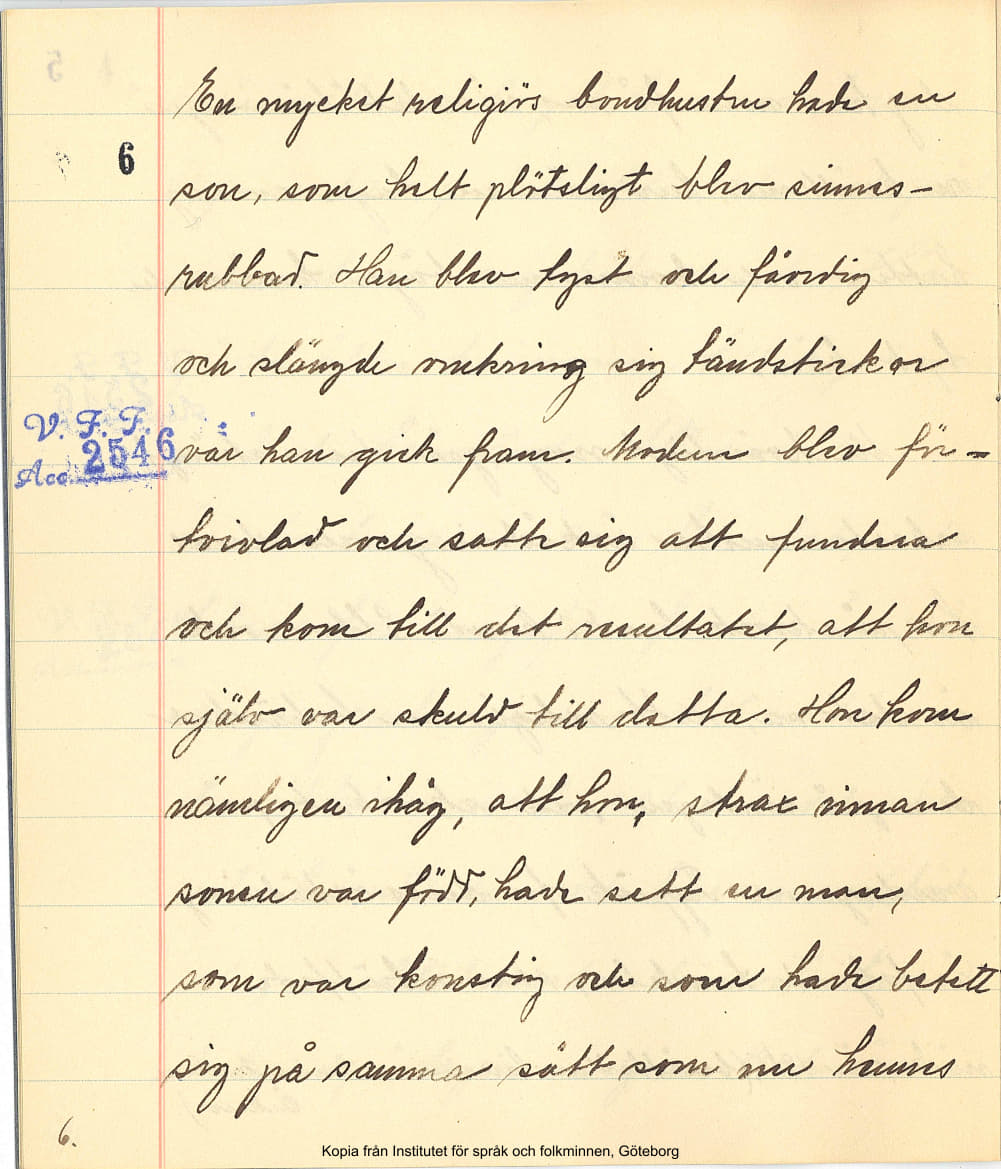 En mycket religiös bondhustru hade en
6
son, som helt plötsligt blev sinnes-
rubbad. Han blev tyst och fåordig
och slängde omkring sig tändstickor
V. F. F.
Acc. 2546
var han gick fram. Modern blev för=
tvivlad och satte sig att fundera
och kom till det resultatet, att hon
själv var skuld till detta. Hon kom
nämligen ihåg, att hon, strax innan
sonen var född, hade sett en man,
som var konstig och som hade betett
sig på samma sätt som nu hennes
6.
Kopia från Institutet för språk och folkminnen, Göteborg